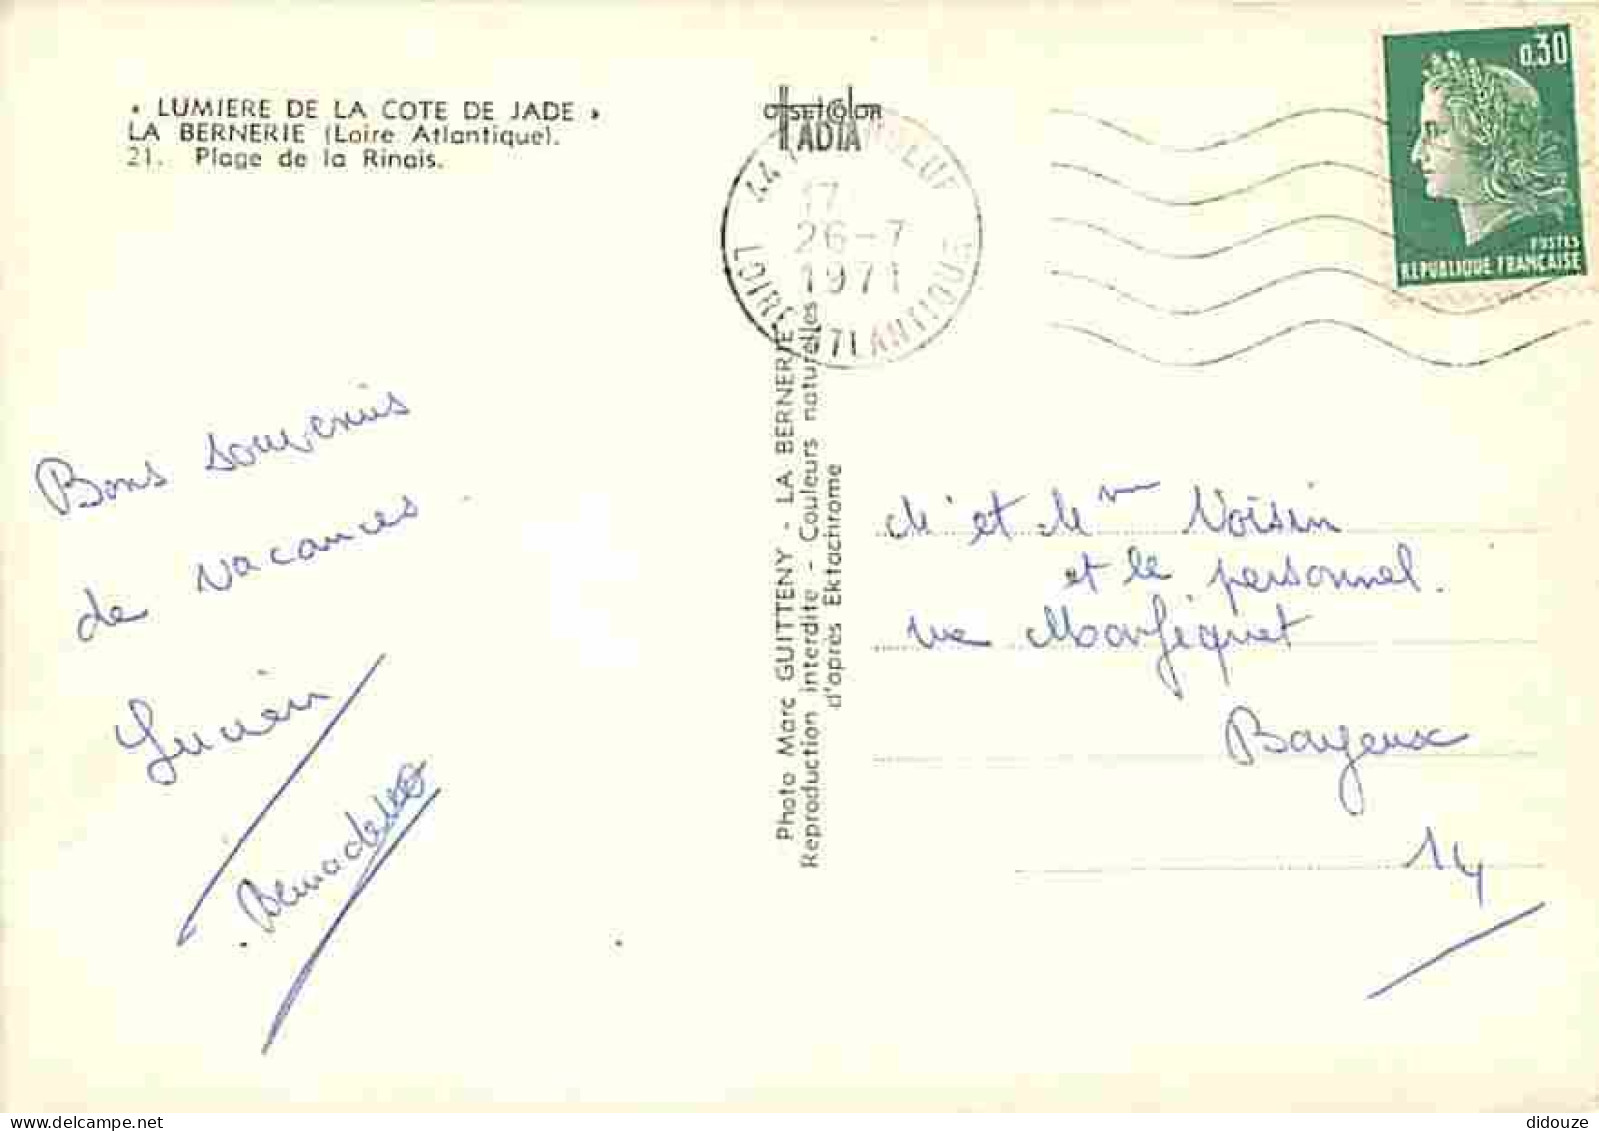 « LUMIERE DE LA COTE DE JADE »
LA BERNERIE (Loire Atlantique).
21. Plage de la Rinais.
offset color
IADIA
44
17
26-7
1971
LOIRE ATLANTIQUE
0,30
POSTES
REPUBLIQUE FRANÇAISE
Bons souvenirs
de vacances
Lucien
Bernadette
Photo Marc GUITTENY - LA BERNERIE
Reproduction interdite - Couleurs naturelles
d'après Ektachrome
M et Mme Voisin
et le personnel.
rue
Bayeux
14
delcampe.net
didouze